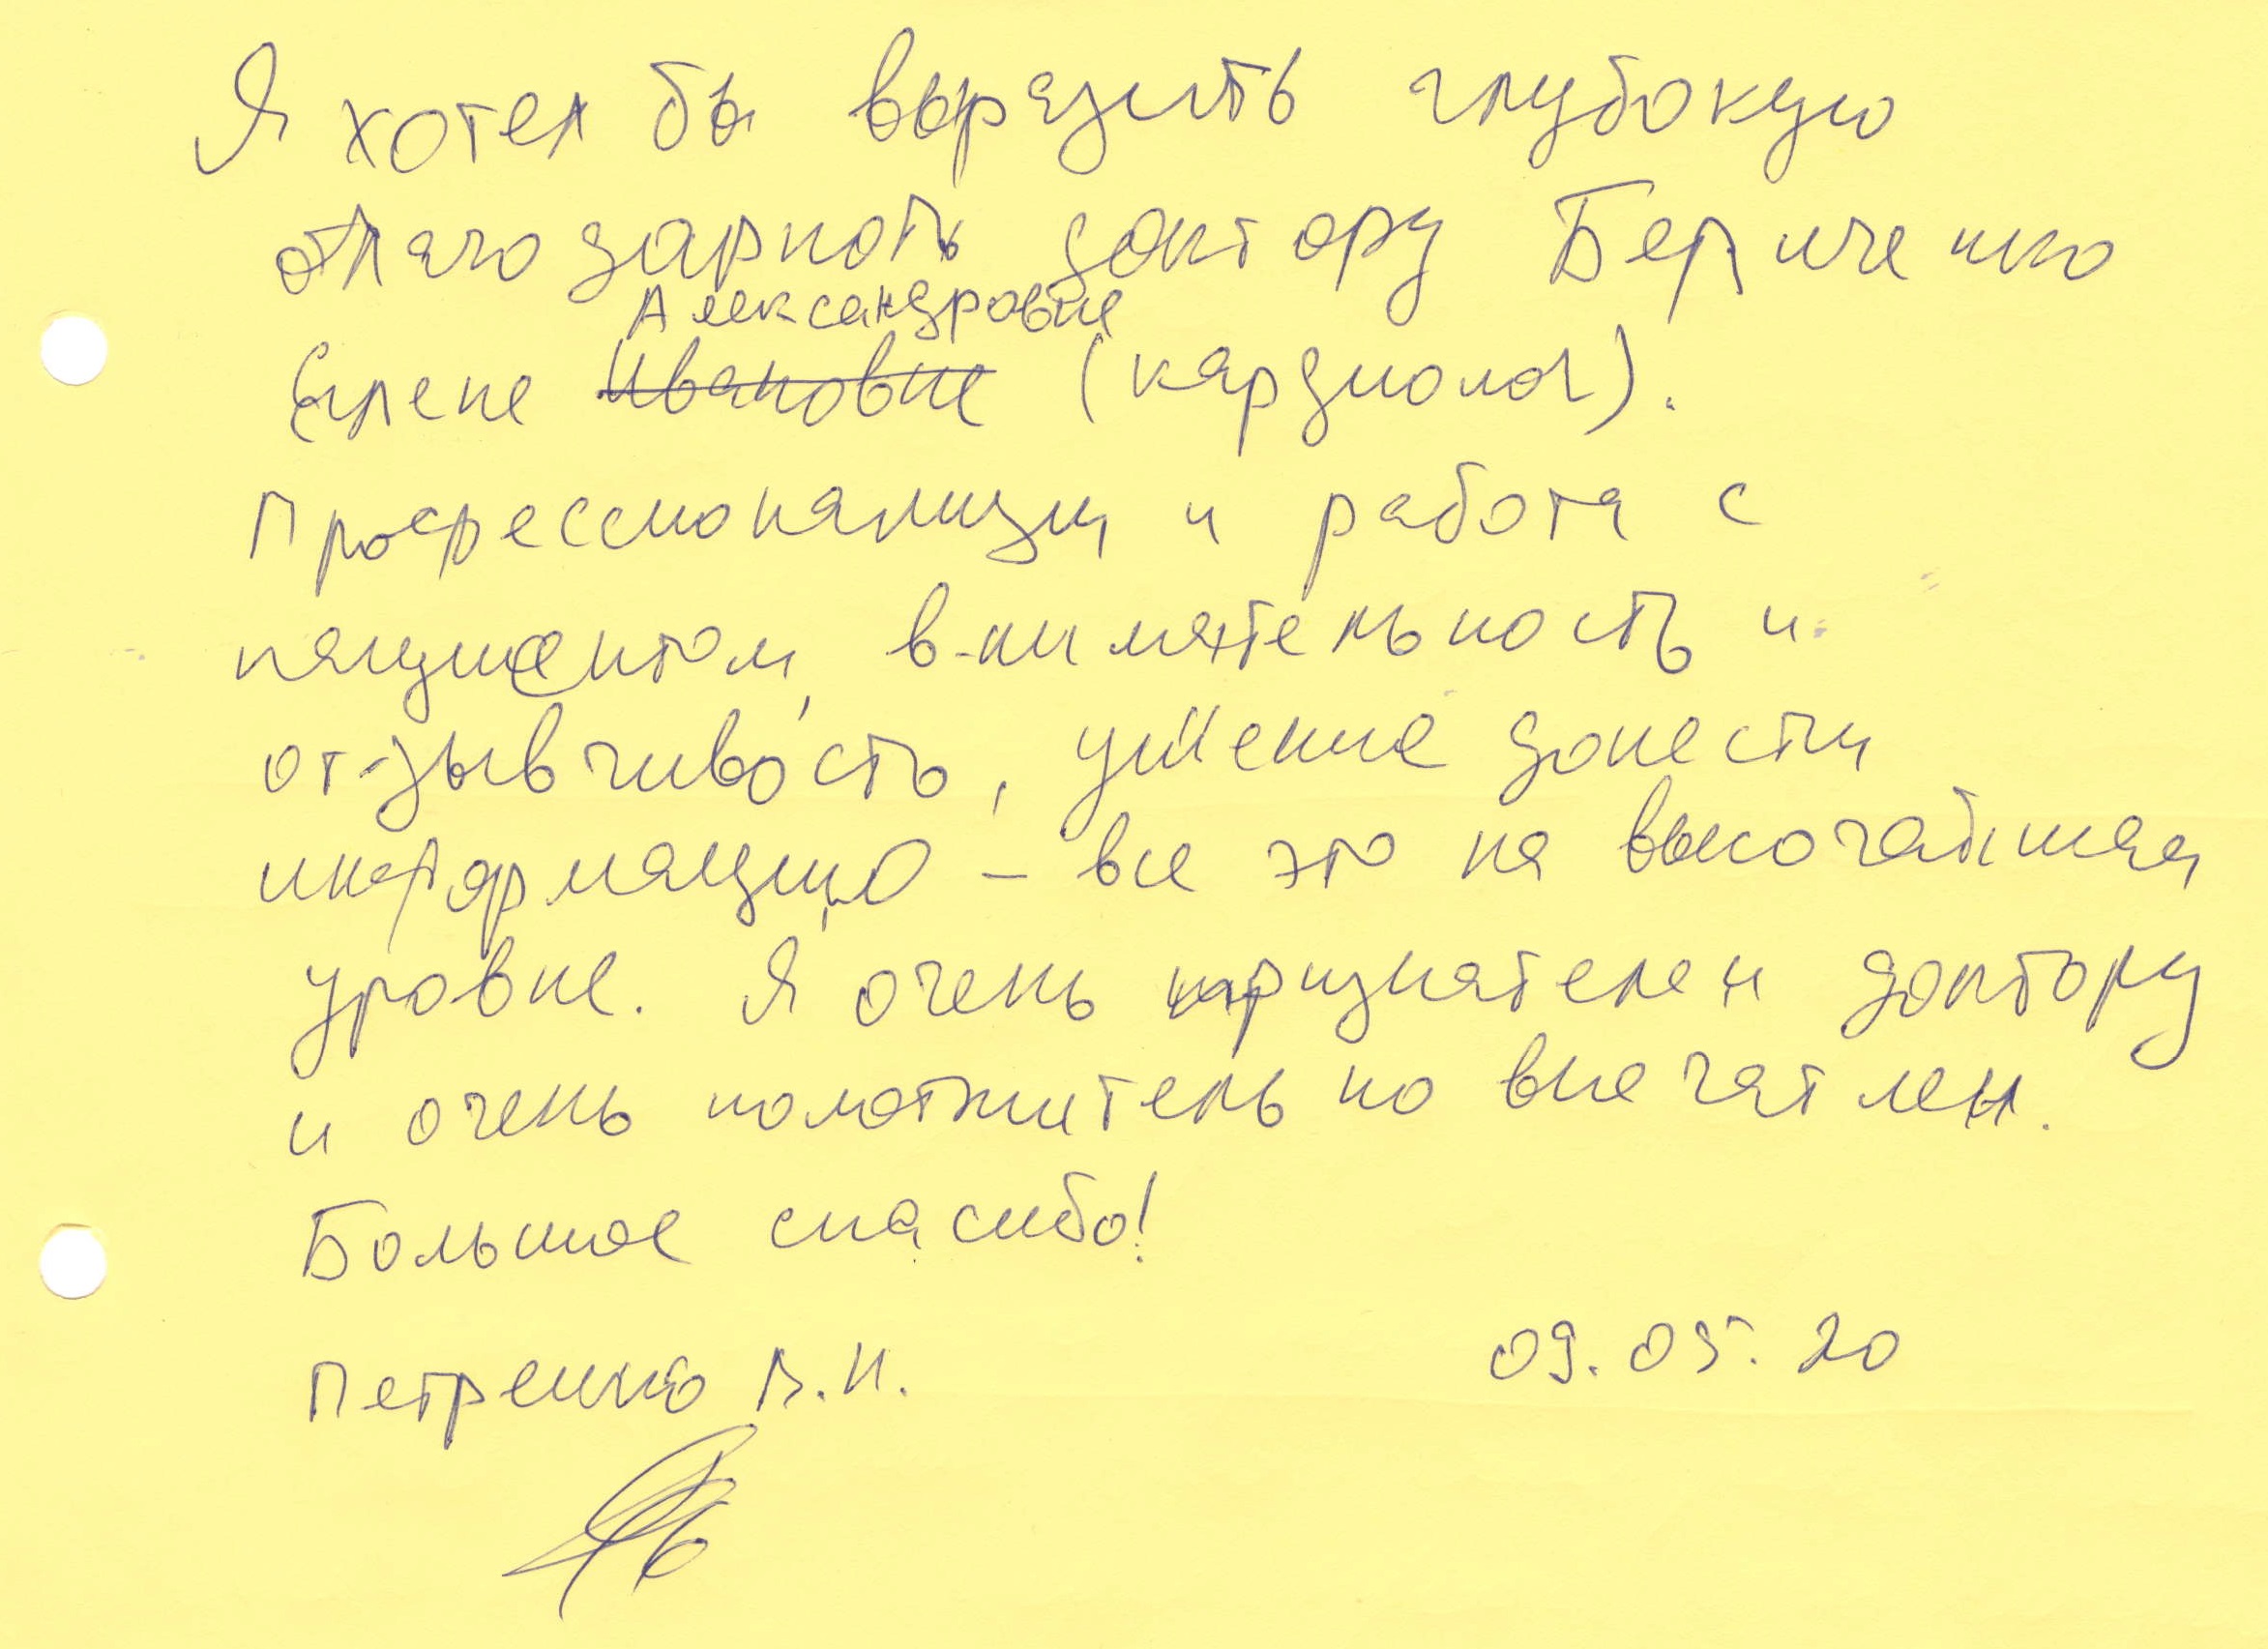 Я хотел бы выразить глубокую
благодарность доктору Бериченко
Александровне
Елене Ивановне (кардиолог).
Профессионализм и работа с
пациентом, внимательность и
отзывчивость, умение донести
информацию – все это на высочайшем
уровне. Я очень признателен доктору
и очень положительно впечатлен.
Большое спасибо!
Петренко В.И. 09.05.20